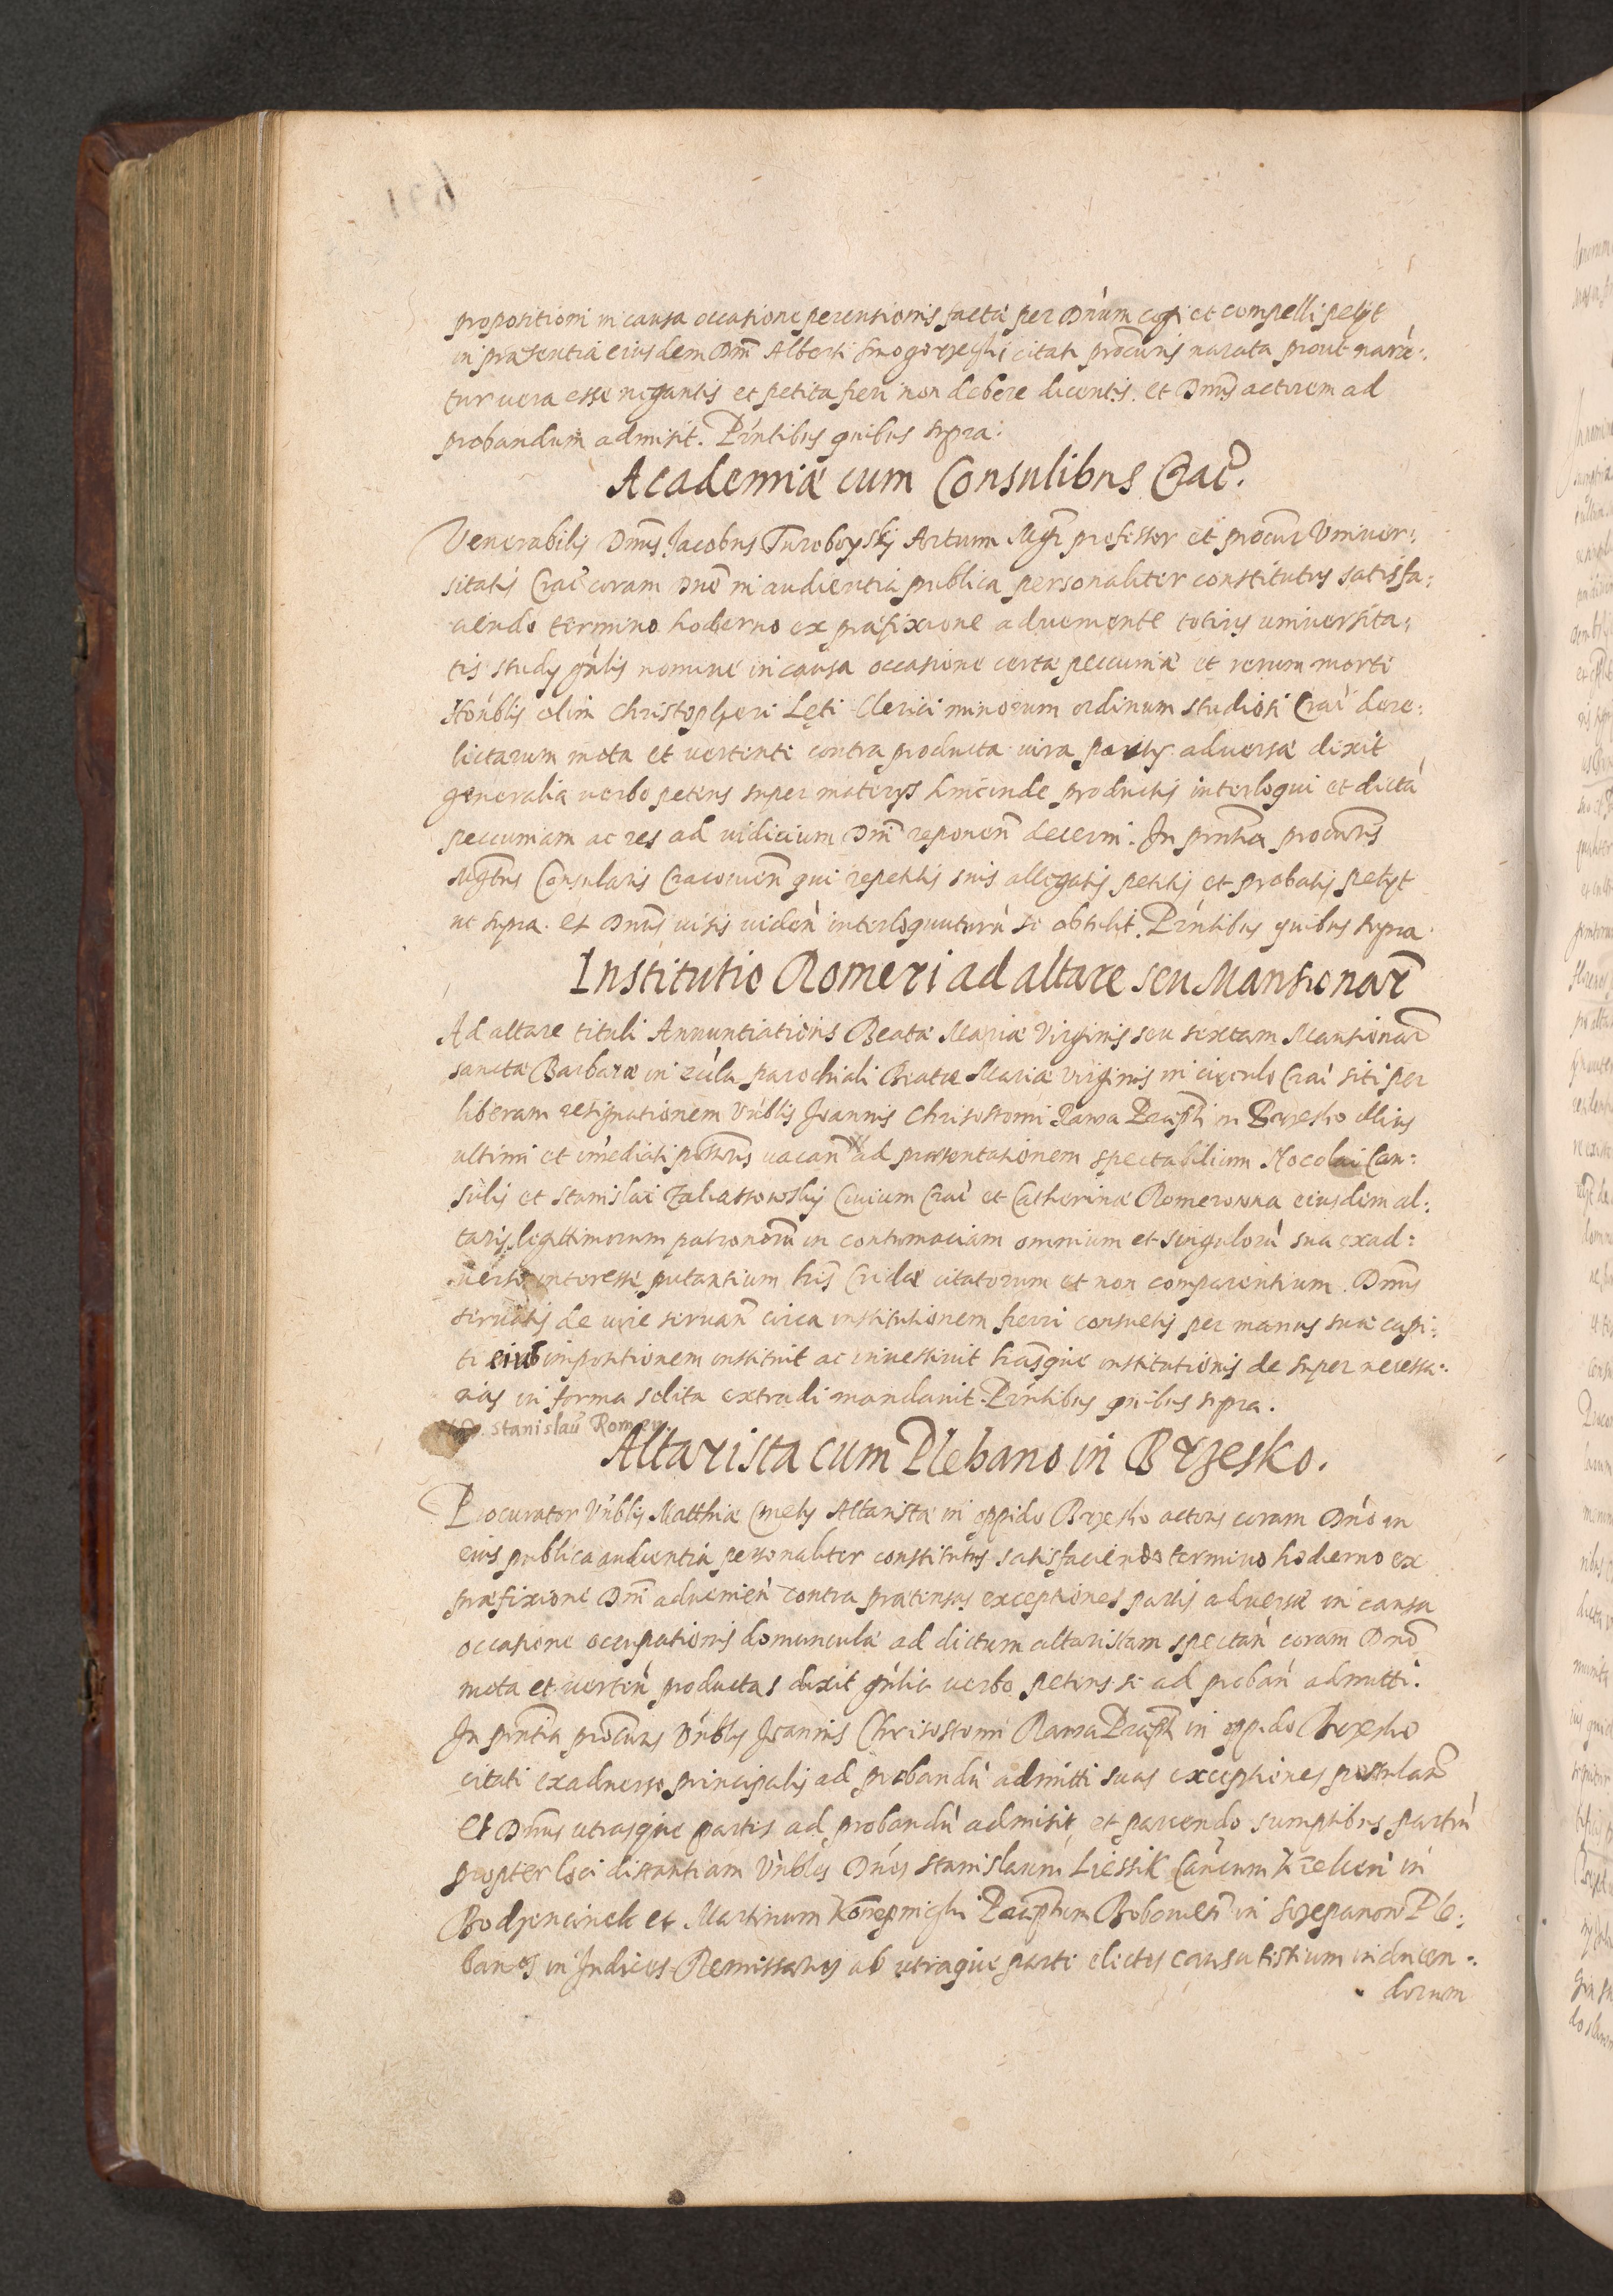 propositioni in causa occasione percussionis facta per Dnum cogi et compelli petijt
in præsentia eiusdem Dni Alberti Smogorzewski citati procuris narata prout narã:
tur vera esse negantis et petita fieri non debere dicentis. et Dnus actorem ad
probandum admisit. Pñtibus quibus supra.
Academiæ cum Consulibus Crac.
Venerabilis Dnus Jacobus Turoboyskÿ Artium Mgr professor et procur Univer:
sitatis Crac coram Dno in audientia publica personaliter constitutus satisfa:
ciendo termino hodierno ex præfixione adveniente totius universita:
tis studij gñlis nomine in causa occasione certæ peccuniæ et rerum morte
Honblis olim Christopheri Lęti Clerici minorum ordinum studiosi Crac dere:
lictarum mota et vertente contra producta iura partis adversæ dixit
generalia verbo petens super materijs hincinde productis interloqui et dictã
peccuniam ac res ad iudicium Dni reponen decerni. In pñtia procuris
Mgtus Consularis Cracovien qui repetitis suis allegatis petitis et probatis petijt
ut supra. et Dnus visis viden interloquuturũ se obtulit. Pñtibus quibus supra
Institutio Romeri ad altare seu Mansionar
Ad altare tituli Annuntiationis Beatæ Mariæ Virginis seu sextam Mansionar
sanctæ Barbaræ in ecclã parochiali Beatæ Mariæ Virginis in circulo Crac siti per
liberam resignationem Vnblis Joannis Chrisostomi Rama Præpti in Brzesko illius
ultimi et imediati possris vacan ad præsentationem spectabilium Nocolai Con:
sulis et Stanislai Zaliassowskij Civium Crac et Catherinæ Romerowna eiusdem al:
taris legittimorum patronorũ in contumaciam omnium et singulorũ sua exad:
verso interesse putantium tris Cridæ citatorum et non comparentium. Dnus
servatis de iure servan circa institutionem fieri consuetis per manus suæ capi:
ti eius impositionem instituit ac investivit trãsque institutionis de super necessa:
rias in forma solita extradi mandavit. Pñtibus quibus supra.
Stanislaũ Romer
Altarista cum Plebano in Brzesko.
Procurator Vnblis Matthiæ Altaristæ in oppido Brzesko actoris coram Dno in
eius publica audientia personaliter constitutus satisfaciendo termino hodierno ex
præfixione Dni advenien contra prætensas exceptiones partis adversæ in causa
occasione occupationis domunculæ ad dictum altaristam spectan coram Dno
mota et verten productas dixit gñlia verbo petens se ad proban admitti.
In pñtia procuris Vnblis Joannis Chrisostomi Rama Præpti in oppido Brzesko
citati exadverso principalis ad probandũ admitti suas exceptiones postulan
Et Dnus utrasque partes ad probandũ admisit, et parcendo sumptibus partiũ
propter loci distantiam Vnbles Dnos Stanislaum Liessik Canonicum in
Bodzencinek et Martinum Præptum Bobovien in Sczepanow Ple:
banos in Judices Remissarios ab utraque parte electos causa testium inducen:
dorum